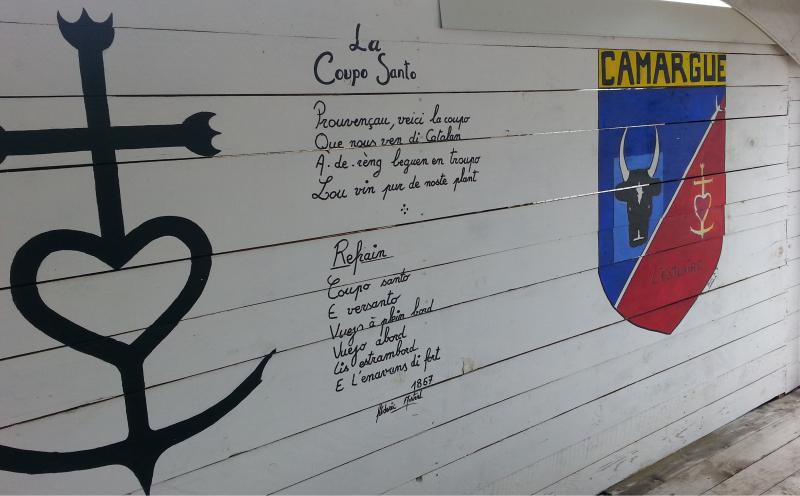 La
Coupo Santo
Prouvençau, veici la coupo
Que nous ven di Catalan
A-de-rèng beguen en troupo
Lou vin pur de noste plant
Refrain
Coupo santo
E versanto
Vuejo à plein bord
Vuejo abord
Lis estrambord
E L'enavans di fort
1867
CAMARGUE
L'ESTUAIRE